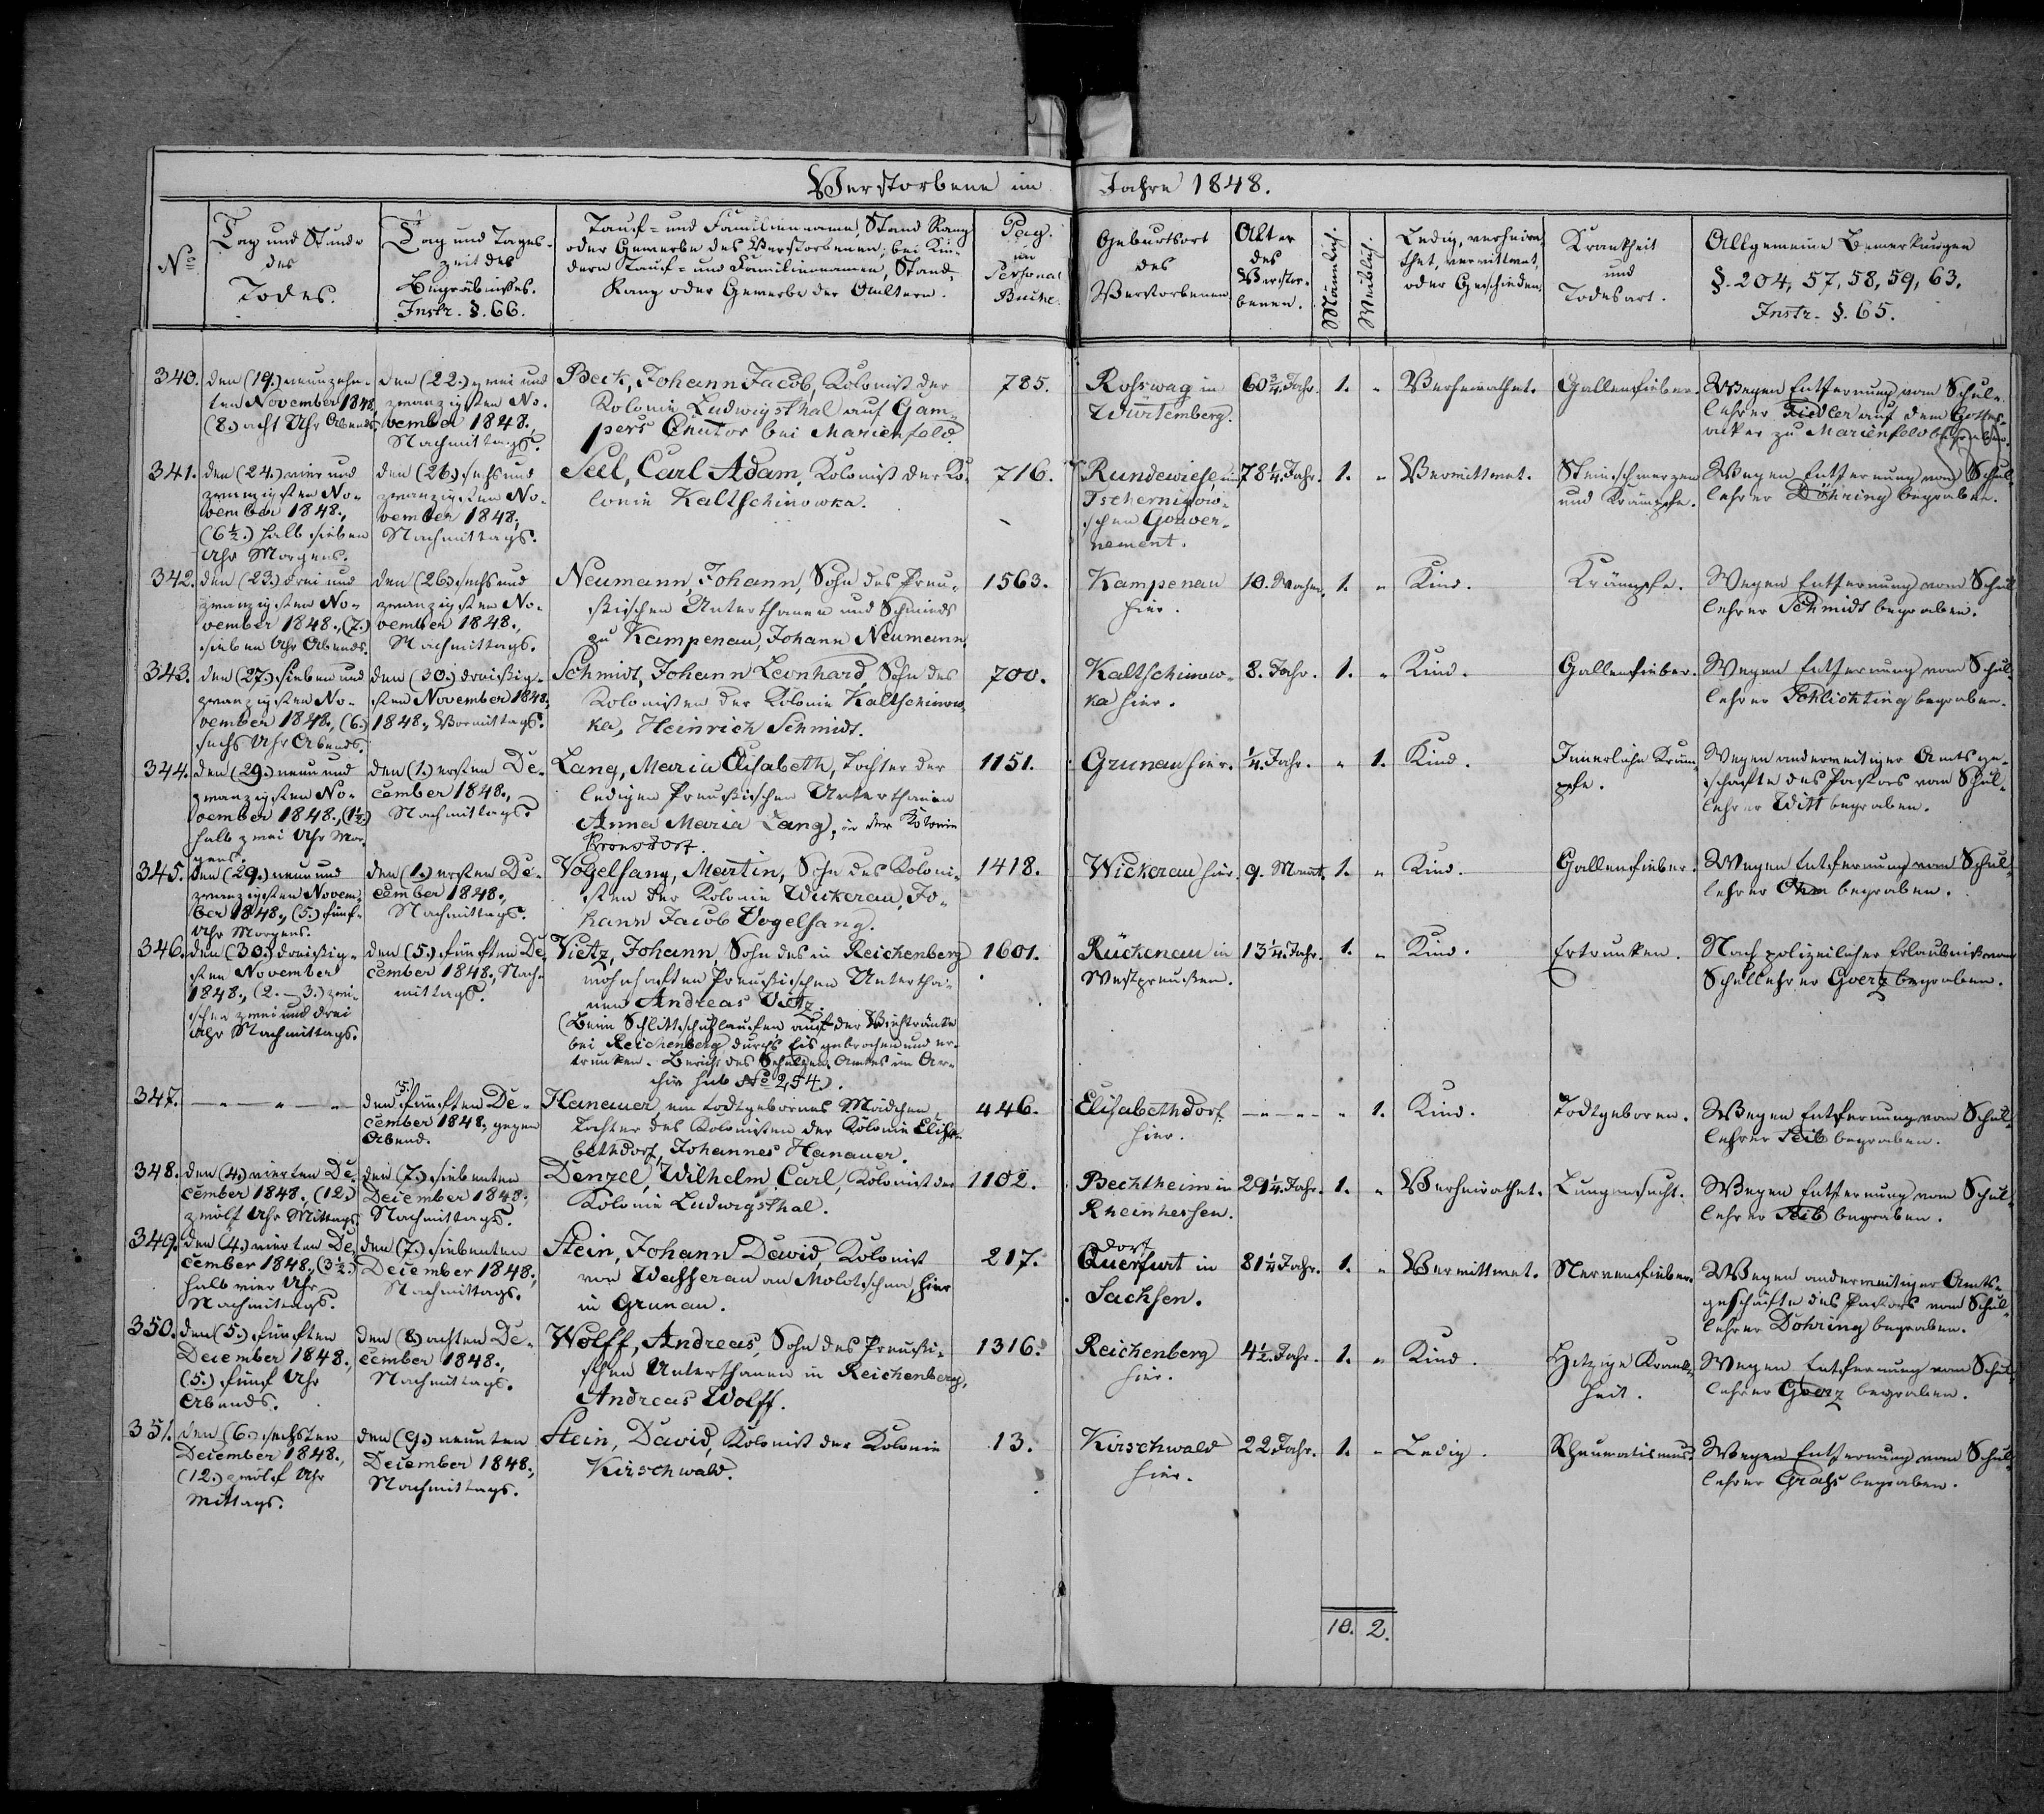 Verstorbene im Jahre 1848.
No
Tag und Stunde
des
Todes.
Tag und Tages-
zeit des
Begräbnißes.
Instr. §. 66.
Tauf- und Familienname, Stand Rang
oder Gewerbe des Verstorbenen, bei Kin-
dern Tauf- und Familiennamen, Stand,
Rang oder Gewerbe der Aeltern.
Pag.
im
Personal
Buche.
Geburtsort
des
Verstorbenen
Alter
des
Verstor-
benen.
Männlich.
Weiblich.
Ledig, verheira-
thet, verwittwet,
oder Geschieden
Krankheit
und
Todesart.
Allgemeine Bemerkungen
§. 204, 57, 58, 59, 63.
Instr. §. 65.
340.
den (19.) neunzehn-
ten November 1848.
(8.) acht Uhr Abends.
den (22.) zwei und
zwanzigsten No-
vember 1848.,
Nachmittags.
Beck, Johann Jacob, Kolonist der
Kolonie Ludwigsthal auf Gam-
pers Chutor bei Marienfeld.
785.
Roßwag in
Würtemberg.
60 3/4. Jahr.
1.
"
Verheirathet.
Gallenfieber.
Wegen Entfernung vom Schul-
lehrer Fiedler auf dem Gottes-
acker zu Marienfeld begraben.
341.
den (24.) vier und
zwanzigsten No-
vember 1848.,
(6 1/2.) halb sieben
Uhr Morgens.
den (26.) sechs und
zwanzigsten No-
vember 1848.,
Nachmittags.
Seel, Carl Adam, Kolonist der Ko-
lonie Kaltschinowka.
716.
Rundewiese im
Tschernigow-
schen Gouver-
nement.
78 1/4. Jahr.
1.
"
Verwittwet.
Steinschmerzen
und Krämpfe.
Wegen Entfernung vom Schul-
lehrer Döhring begraben.
342.
den (23.) drei und
zwanzigsten No-
vember 1848., (7.)
sieben Uhr Abends.
den (26.) sechs und
zwanzigsten No-
vember 1848.,
Nachmittags.
Neumann, Johann, Sohn des Preu-
ßischen Unterthanen und Schmieds
zu Kampenau, Johann Neumann.
1563.
Kampenau
hier.
10. Wochen.
1.
"
Kind.
Krämpfe.
Wegen Entfernung vom Schul-
lehrer Schmidt begraben.
343.
den (27.) sieben und
zwanzigsten No-
vember 1848., (6.)
sechs Uhr Abends.
den (30.) dreißig-
sten November 1848.
1848., Vormittags.
Schmidt, Johann Leonhard, Sohn des
Kolonisten der Kolonie Kaltschinow-
ka, Heinrich Schmidt.
700.
Kaltschinow-
ka hier.
8. Jahr.
1.
"
Kind.
Gallenfieber.
Wegen Entfernung vom Schul-
lehrer Schlichting begraben.
344.
den (29.) neun und
zwanzigsten No-
vember 1848., (1 1/2.)
halb zwei Uhr Mor-
gens.
den (1.) ersten De-
cember 1848.,
Nachmittags.
Lang, Maria Elisabeth, Tochter der
ledigen Preußischen Unterthanin
Anna Maria Lang, in der Kolonie
Kronsdorf.
1151.
Grunau hier.
1/4. Jahr.
"
1.
Kind.
Innerliche Kräm-
pfe.
Wegen anderweitiger Amtsge-
schäfte des Pastors vom Schul-
lehrer Witt begraben.
345.
den (29.) neun und
zwanzigsten Novem-
ber 1848., (5.) fünf
Uhr Morgens.
den (1.) ersten De-
cember 1848.,
Nachmittags.
Vogelsang, Martin, Sohn des Koloni-
sten der Kolonie Wickerau, Jo-
hann Jacob Vogelsang.
1418.
Wickerau hier.
9. Monat.
1.
"
Kind.
Gallenfieber.
Wegen Entfernung vom Schul-
lehrer Ohm begraben.
346.
den (30.) dreißig-
sten November
1848., (2.-3.) zwi-
schen zwei und drei
Uhr Nachmittags.
den (5.) fünften De-
cember 1848., Nach-
mittags.
Vietz, Johann, Sohn des in Reichenberg
wohnhaften Preußischen Untertha-
nen Andreas Vietz.
(Beim Schlittschuhlaufen auf der Viehtränke
bei Reichenberg durchs Eis gebrochen und er-
trunken. Bericht des Schulzen Amtes im Ar-
chiv sub No 254.)
1601.
Rückenau in
Westpreußen.
13 1/4. Jahr.
1.
"
Kind.
Ertrunken.
Nach polizeilicher Erlaubniß vom
Schullehrer Goertz begraben.
347.
den (5.) fünften De-
cember 1848., gegen
Abend.
Hanauer, ein todtgebornes Mädchen,
Tochter des Kolonisten der Kolonie Elisa-
bethdorf, Johannes Hanauer.
446.
Elisabethdorf
hier.
"
1.
Kind.
Todtgeboren.
Wegen Entfernung vom Schul-
lehrer Seib begraben.
348.
den (4.) vierten De-
cember 1848., (12.)
zwölf Uhr Mittags.
den (7.) siebenten
December 1848.,
Nachmittags.
Denzel, Wilhelm Carl, Kolonist der
Kolonie Ludwigsthal.
1102.
Bechtheim in
Rheinhessen.
29 1/4. Jahr.
1.
"
Verheirathet.
Lungensucht.
Wegen Entfernung vom Schul-
lehrer Seib begraben.
349.
den (4.) vierten De-
cember 1848., (3 1/2.)
halb vier Uhr
Nachmittags.
den (7.) siebenten
December 1848.,
Nachmittags.
Stein, Johann David, Kolonist
von Wasserau an Molotschna, hier
in Grunau.
217.
dorf
Querfurt in
Sachsen.
81 1/4 Jahr.
1.
"
Verwittwet.
Nervenfieber.
Wegen anderweitiger Amts-
geschäfte des Pastors vom Schul-
lehrer Döhring begraben.
350.
den (5.) fünften
December 1848.,
(5.) fünf Uhr
Abends.
den (8.) achten De-
cember 1848.,
Nachmittags.
Wolff, Andreas, Sohn des Preußi-
schen Unterthanen in Reichenberg,
Andreas Wolff.
1316.
Reichenberg
hier.
4 1/2. Jahr.
1.
"
Kind.
Hitzige Krank-
heit.
Wegen Entfernung vom Schul-
lehrer Goerz begraben.
351.
den (6.) sechsten
December 1848.,
(12.) zwölf Uhr
Mittags.
den (9.) neunten
December 1848.,
Nachmittags.
Stein, David, Kolonist der Kolonie
Kirschwald.
13.
Kirschwald
hier.
22. Jahr.
1.
"
Ledig.
Rheumatismus.
Wegen Entfernung vom Schul-
lehrer Grahs begraben.
10. 2.